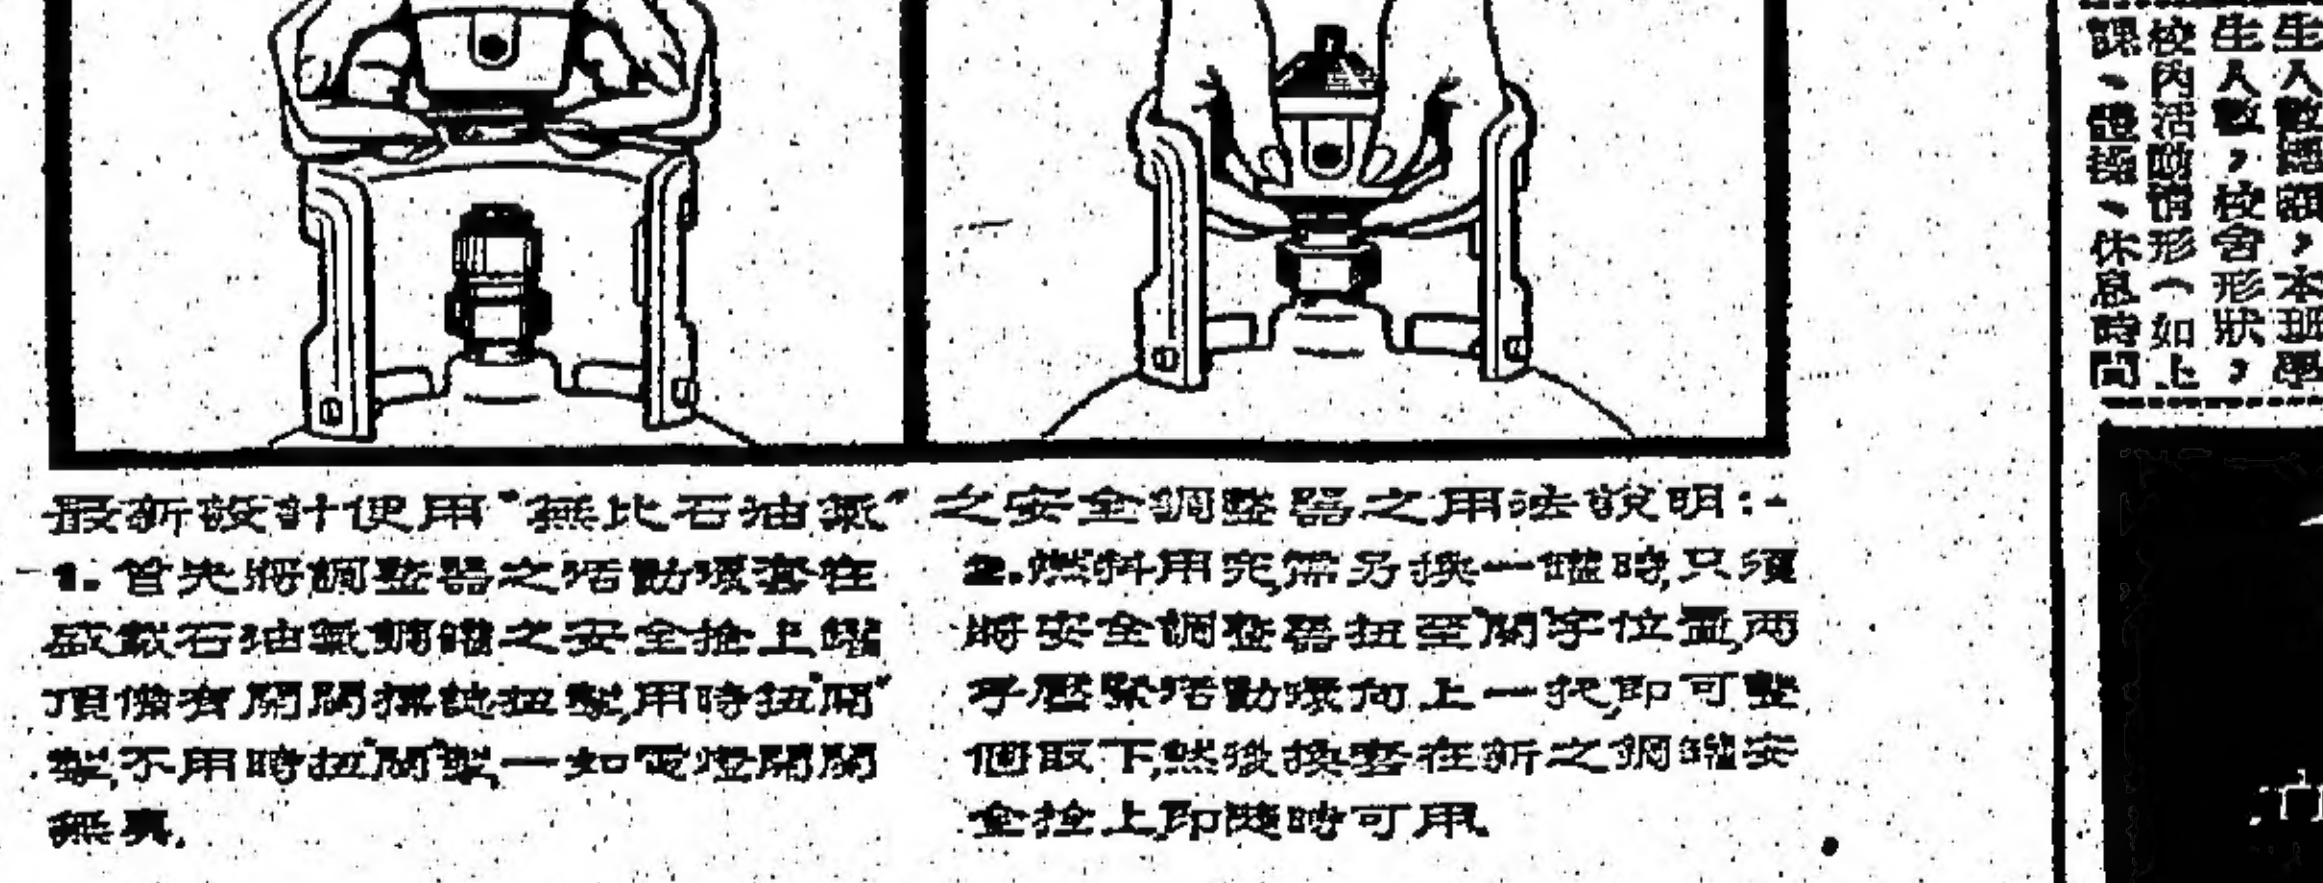 最新設計使用"無比石油氣"之安全調整器之用法說明:-
1.首先將調整器之活動環套在
盛載石油氣鋼罐之安全拴上罐
頂備有開關標誌扭掣,用時扭"開"
掣,不用時扭"關"掣,一如電燈開關
無異.
2.燃料用完,需另換一罐時,只須
將安全調整器扭至"關"字位置,兩
手壓緊活動環向上一抬,即可整
個取下,然後換套在新之鋼罐安
全拴上,即隨時可用.
生人數總額,本班學
生人數,校舍形狀,
校內活動情形(如上
課、體操、休息時間